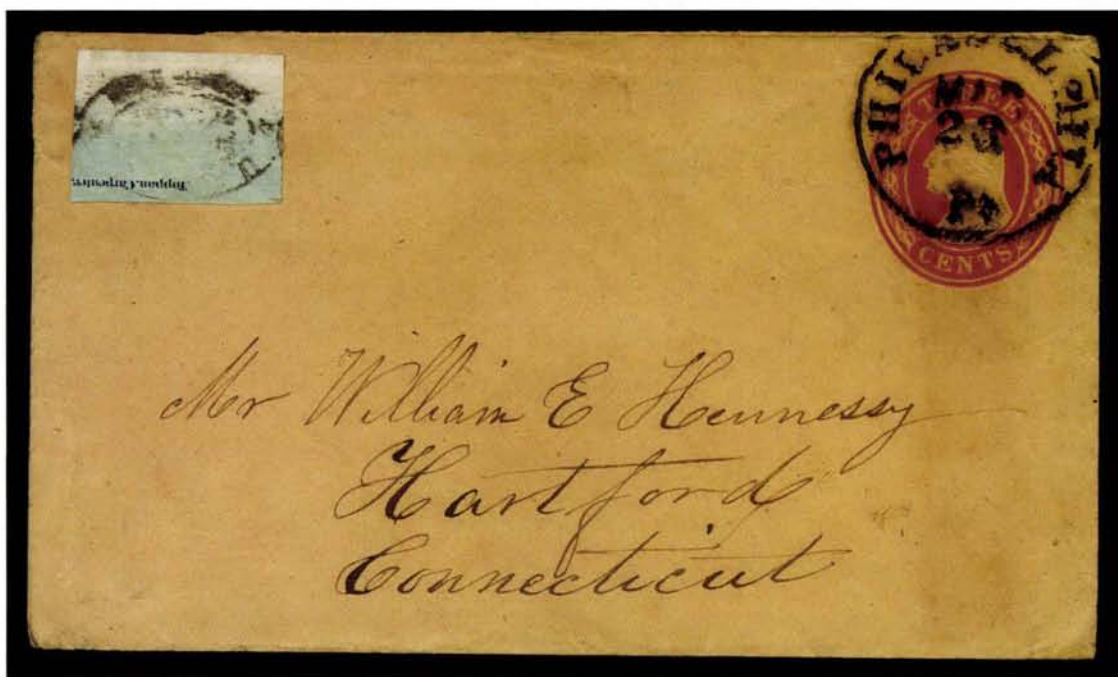 Toppan, Carpenter,
P.O.
PHILADELPHIA
MAR
23
Pa
THREE
CENTS
Mr William E Hennessy
Hartford
Connecticut